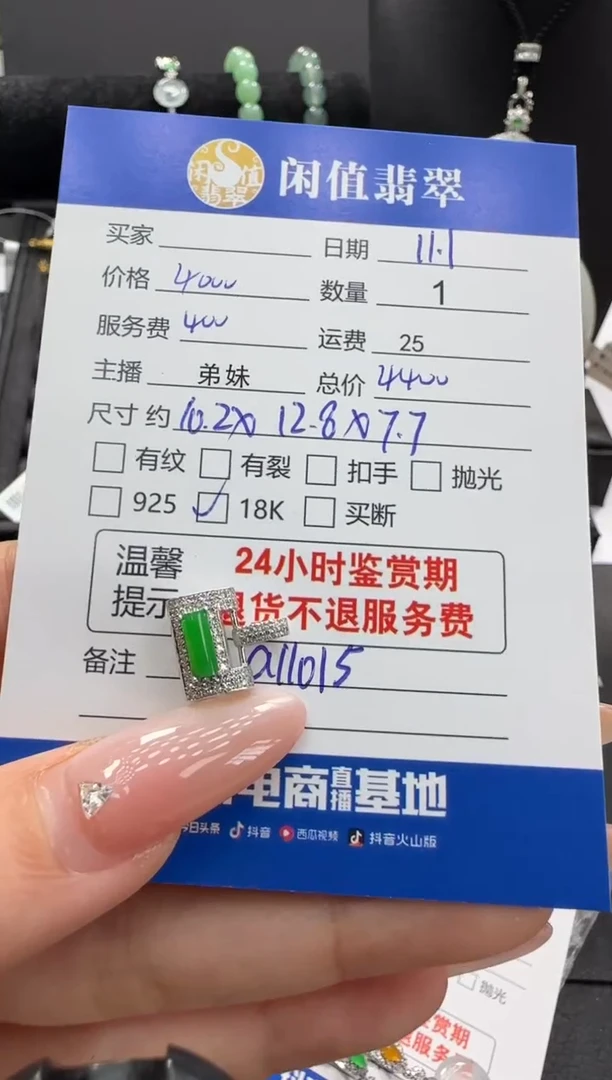 闲值翡翠
闲值翡翠
买家 日期 11.1
价格 4000 数量 1
服务费 400 运费 25
主播 弟妹 总价 4400
尺寸 约 10.2x 12.8x7.7
有纹 有裂 扣手 抛光
925 18K 买断
温馨 24小时鉴赏期
提示 退货不退服务费
备注 a11015
电商直播基地
今日头条 抖音 西瓜视频 抖音火山版
抛光
赏期
退服务